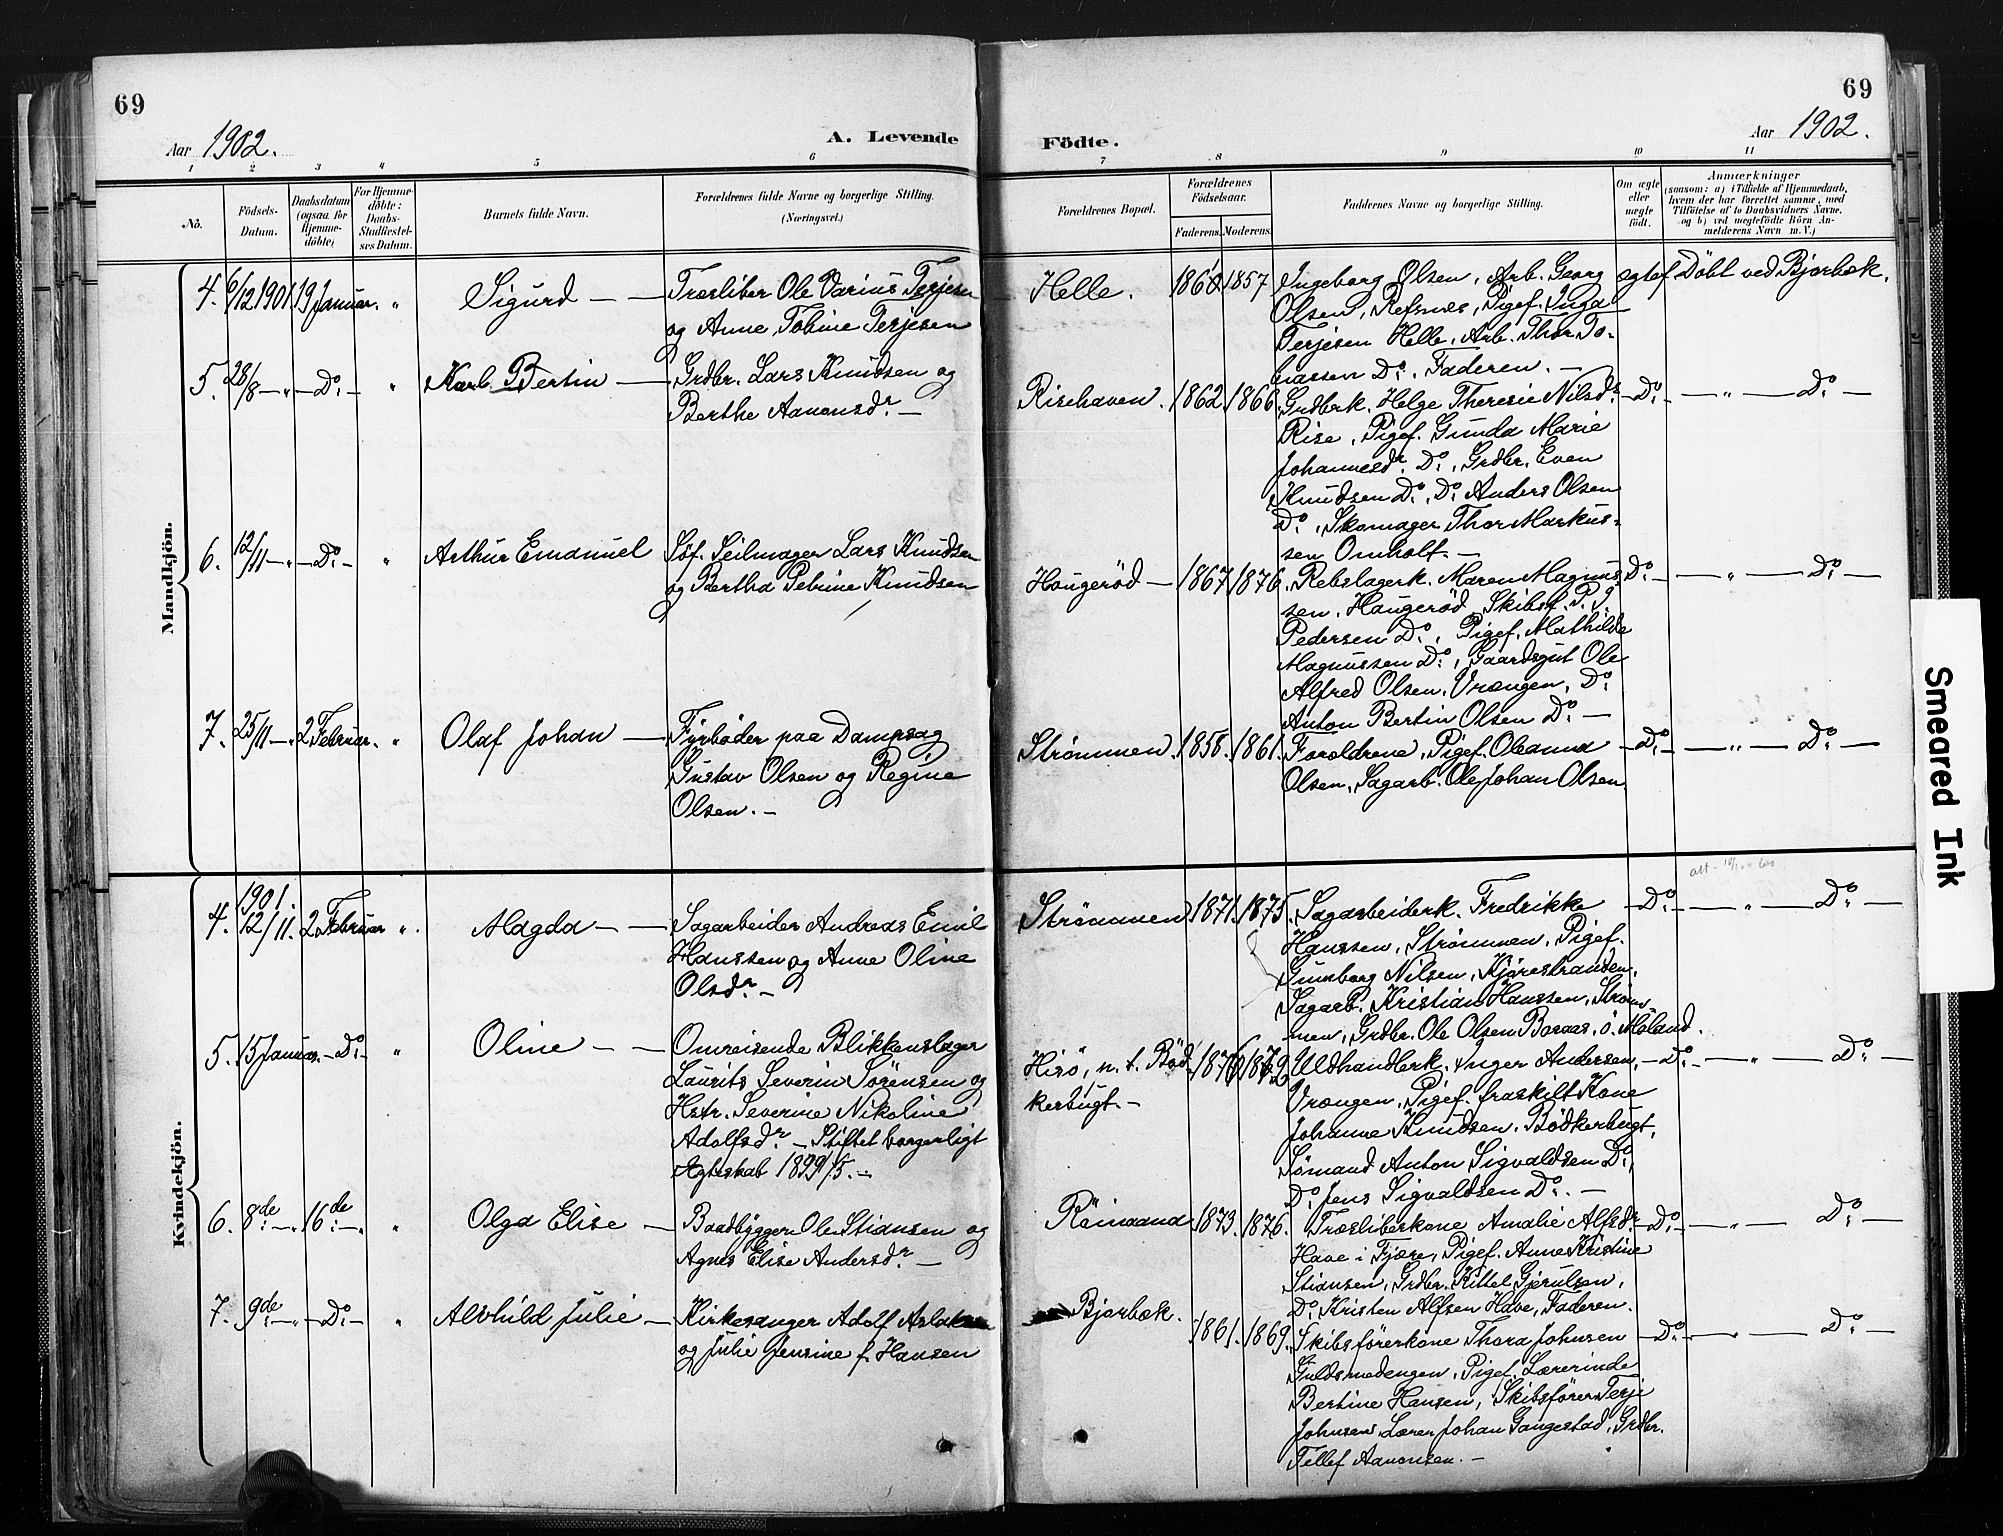 69
69
Aar 1902.
A. Levende
Födte.
Aar 1902.
1 2 3 4 5 6 7 8 9 10 11
No.
Födsels-
Datum.
Daabsdatum
(ogsaa for
Hjemme-
döbte)
For Hjemme-
döbte:
Daabs-
Stadfæstel-
ses Datum.
Barnets fulde Navn.
Forældrenes fulde Navne og borgerlige Stilling.
(Næringsvei.)
Forældrenes Bopæl.
Forældrenes
Födselsaar.
Faderens.
Moderens.
Faddernes Navne og borgerlige Stilling.
Om ægte
eller
uægte
födt.
Anmærkninger
(saasom: a) i Tilfælde af Hjemmedaab,
hvem der har forrettet samme, med
Tilföielse af to Daabsvidners Navne,
og b) ved uægtefödte Börn An-
melderens Navn m. V.)
Mandkjön.
4. 6/12 1901. 19 Januar. " Sigurd —
Træsliber Ole Darius Terjesen
og Anne Tobine Terjesen
Helle. 1860 1857
Ingeborg Olsen, Arb. Georg
Olsen, Refsnes, Pigef. Inga
Terjesen Helle, Arb. Thor To-
biassen Do. Faderen. —
egtef. Döbt ved Bjorbæk.
5. 28/8 — " — Do — " Karl Bertin —
Grdbr. Lars Knudsen og
Berthe Aanonsdr. —
Risehaven. 1862. 1866.
Grdbrk. Helge Theresie Nilsdr.
Rise, Pigef. Gunda Marie
Johannesdr. Do., Grdbr. Even
Knudsen Do., Do. Anders Olsen
Do., Skomager Thor Markus-
sen Omholt. —
— Do — " — Do —
6. 12/11 — " — Do — " Arthur Emanuel
Söf. Seilmager Lars Knudsen
og Bertha Petrine Knudsen
Haugeröd — 1867. 1876.
Rebslagerk. Maren Magnus-
sen, Haugeröd, Skibsf. P. J.
Pedersen Do., Pigef. Mathilde
Magnussen Do., Gaardsgut Ole
Alfred Olsen, Vrængen, Do.
Anton Bertin Olsen Do. —
Do — " — Do —
7. 25/11 — " 2 Februar. " Olaf Johan —
Fyrböder paa Dampsag
Gustav Olsen og Regine
Olsen. —
Strömmen. 1858. 1861.
Forældrene, Pigef. Oleanna
Olsen, Sagarb. Ole Johan Olsen
— Do — " — Do —
Kvindekjön.
1901.
4. 12/11. 2 Februar " Magda —
Sagarbeider Andreas Emil
Hanssen og Anne Oline
Olsdr. —
Strömmen 1871. 1875.
Sagarbeiderk. Fredrikke
Hanssen, Strömmen, Pigef.
Gunborg Nilsen, Kjörestranden,
Sagarb. Kristian Hanssen, Ström-
men, Grdbr. Ole Olsen Baraas, ö. Moland.
— Do — " — Do —
5. 15 Januar. — Do — " Oline —
Omreisende Blikkenslager
Laurits Severin Sørensen og
Hstr. Severine Nikoline
Adolfsdr. — Stiftet borgerligt
Ægteskab 1899 /5. —
Hisö, n. t. Böd-
kerbugt. — 1876 1872
Uldhandlerk. Inger Andersen,
Vrængen, Pigef. fraskilt Kone
Johanne Knudsen, Bödkerbugt,
Sömand Anton Sigvaldsen Do.,
Do. Jens Sigvaldsen Do. —
— Do — " — Do —
6. 8de — " 16de — " Olga Elise —
Baadbygger Ole Stiansen og
Agnes Elise Andersdr. —
Röinaand 1873. 1876.
Træsliberkone Amalie Alfsdr.
Have i Fjære, Pigef. Anne Kristine
Stiansen, Grdbr. Kittel Gjerulsen,
Do. Kristen Alfsen Have, Faderen.
— Do — " — Do —
7. 9de — " — Do — " Alvhild Julie —
Kirkesanger Adolf Aslaksen
og Julie Jensine f. Hansen
Bjorbæk. 1861. 1869.
Skibsförerkone Thora Johnsen
Guldsmedengen, Pigef. Lærerinde
Bertine Hansen, Skibsförer Terje
Johnsen, Lærer Johan Gangestad, Grdbr.
Tellef Aanonsen. —
— Do — " — Do —
Smeared Ink